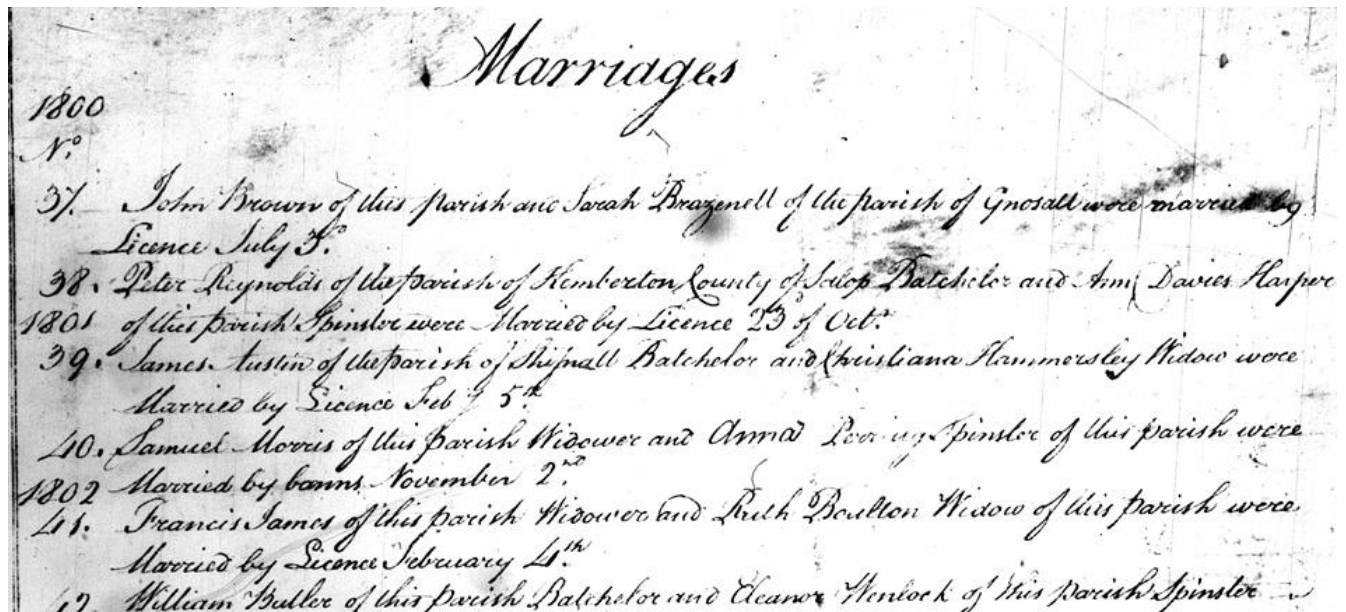 Marriages
1800
No.
37. John Brown of this parish and Sarah Brazenell of the parish of Gnosall were married by
Licence July 3.
38. Peter Reynolds of the parish of Kemberton County of Salop Batchelor and Ann Davies Harper
1801 of this parish Spinster were Married by Licence 23 of Octr.
39. James Austin of the parish of Shifnall Batchelor and Christiana Hammersley Widow were
Married by Licence Feby 5th
40. Samuel Morris of this parish Widower and Anna Spinster of this parish were
1802 Married by banns November 2nd.
41. Francis James of this parish Widower and Ruth Boulton Widow of this parish were
Married by Licence February 4th.
42. William Butler of this parish Batchelor and Eleanor Wenlock of this parish Spinster